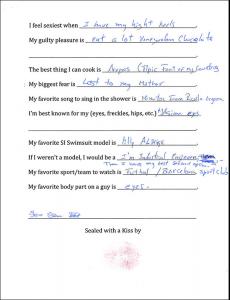 I feel sexiest when I have my hight heels
My guilty pleasure is eat a lot Venezuelan Chocolate
The best thing I can cook is Arepas (Tipic Food of my Country)
My biggest fear is Lost to my Mother
My favorite song to sing in the shower is
I'm best known for my (eyes, freckles, hips, etc.) eyes
My favorite SI Swimsuit model is
If I weren't a model, I would be a I'm Industrial Engineer
Then I have my best
My favorite sport/team to watch is Futbol / Barcelona Sport Club
My favorite body part on a guy is eyes.
Sealed with a Kiss by